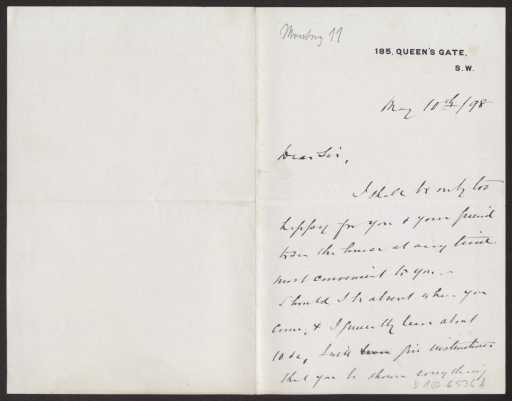 185, QUEEN'S GATE,
S.W.
May 10th/98
Dear Sir,
I shall be only too
happy for you & your friend
to see the house at any time
most convenient to you.
Should I be absent when you
come, & I generally leave about
10 I will give instructions
that you be shown everything